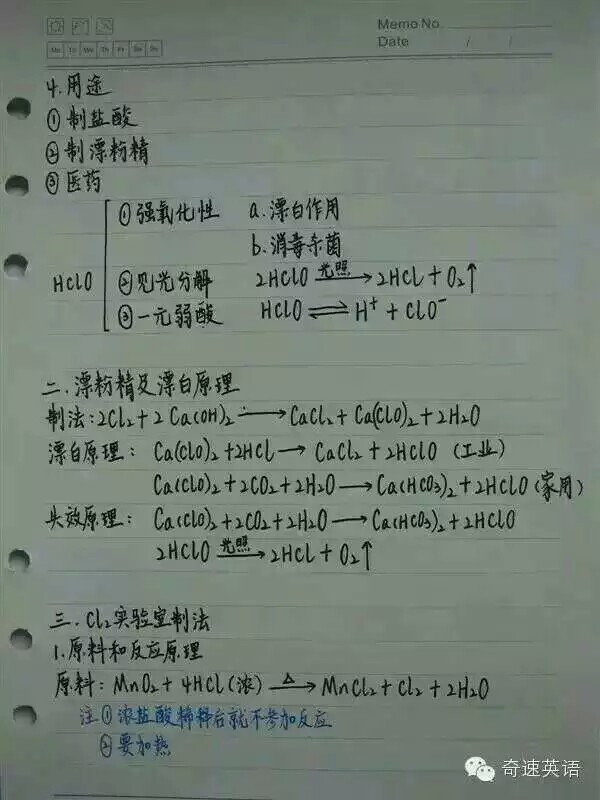 Memo No.
Date / /
Mo Tu We Th Fr Sa Su
4.用途
①制盐酸
②制漂粉精
③医药
HClO
①强氧化性 a.漂白作用
b.消毒杀菌
②见光分解 2HClO 光照→ 2HCl + O₂↑
③一元弱酸 HClO ⇌ H⁺ + ClO⁻
二.漂粉精及漂白原理
制法:2Cl₂+2Ca(OH)₂ → CaCl₂+Ca(ClO)₂+2H₂O
漂白原理: Ca(ClO)₂+2HCl → CaCl₂+2HClO (工业)
Ca(ClO)₂+2CO₂+2H₂O → Ca(HCO₃)₂+2HClO(家用)
失效原理: Ca(ClO)₂+2CO₂+2H₂O → Ca(HCO₃)₂+2HClO
2HClO 光照→ 2HCl + O₂↑
三.Cl₂实验室制法
1.原料和反应原理
原料: MnO₂ + 4HCl(浓) △→ MnCl₂+Cl₂+2H₂O
注①浓盐酸稀释后就不参加反应
②要加热
奇速英语